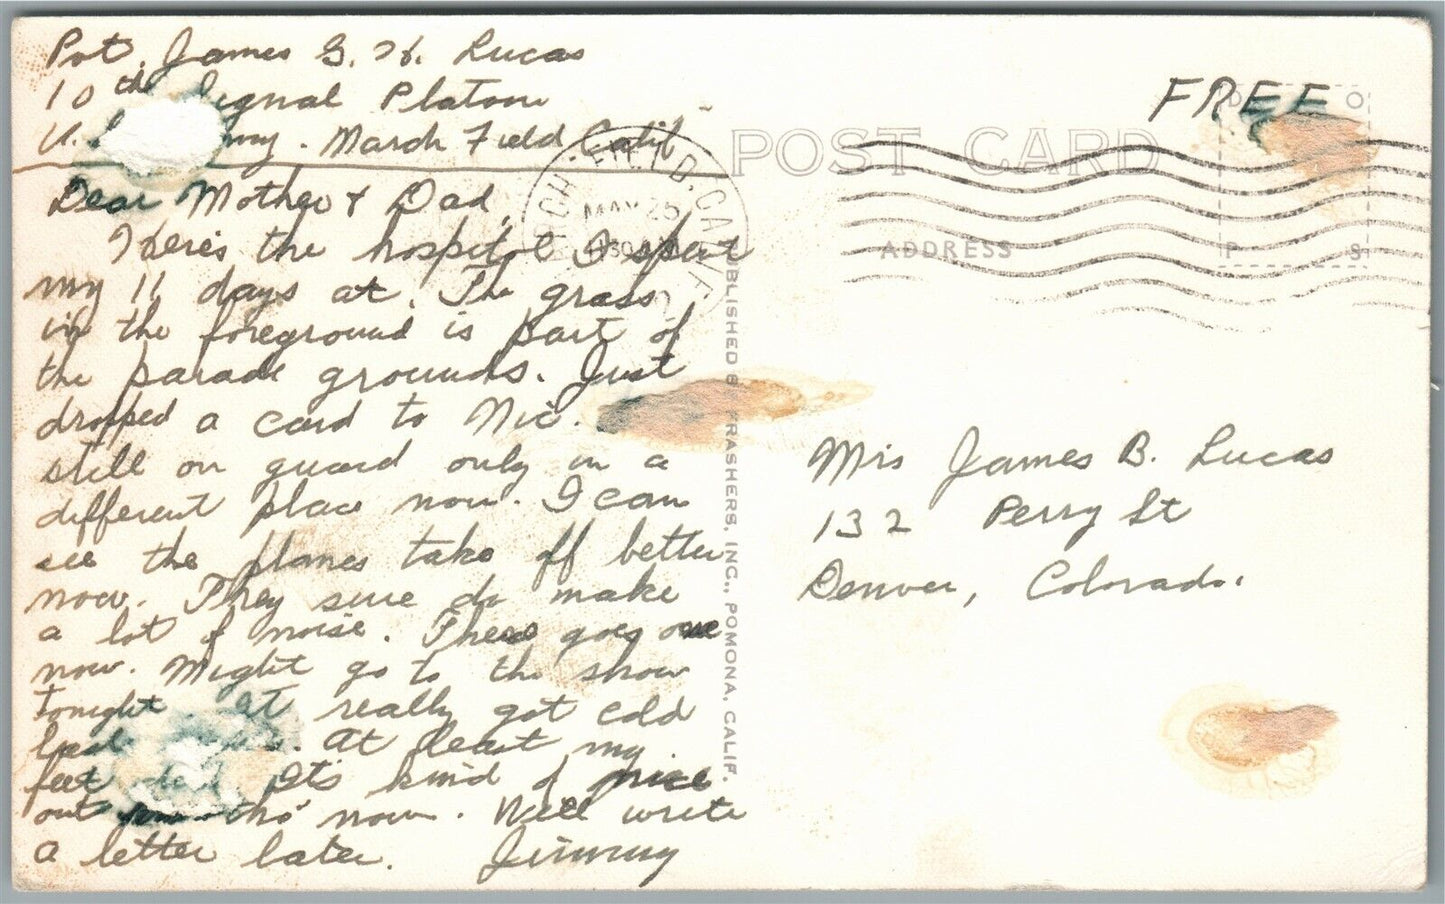 Pvt. James G. H. Lucas
10th Signal Platoon
U. Army. March Field Calif
Dear Mother & Dad,
Here's the hospital I spent
my 11 days at. The grass
in the foreground is part of
the parade grounds. Just
dropped a card to Nic.
still on guard only in a
different place now. I can
see the planes take off better
now. They sure do make
a lot of noise. There goes one
now. Might go to the show
Tonight. It really got cold
last. At least my
feet. It's kind of nice
out tho' now. Well write
a letter later. Jimmy
FREE
POST CARD
ADDRESS
P O
P S
MARCH FIELD, CALIF.
MAY 25
1130
PUBLISHED BY FRASHERS, INC., POMONA, CALIF.
Mrs James B. Lucas
132 Perry St
Denver, Colorado.